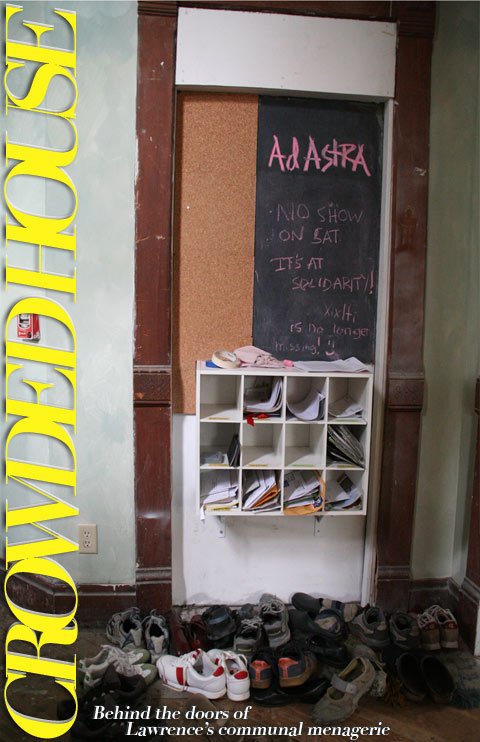 CROWDED HOUSE
Ad AStRA
NO SHOW
ON SAT
IT'S AT
SOLIDARITY!!
is no longer
missing!
Behind the doors of
Lawrence's communal menagerie